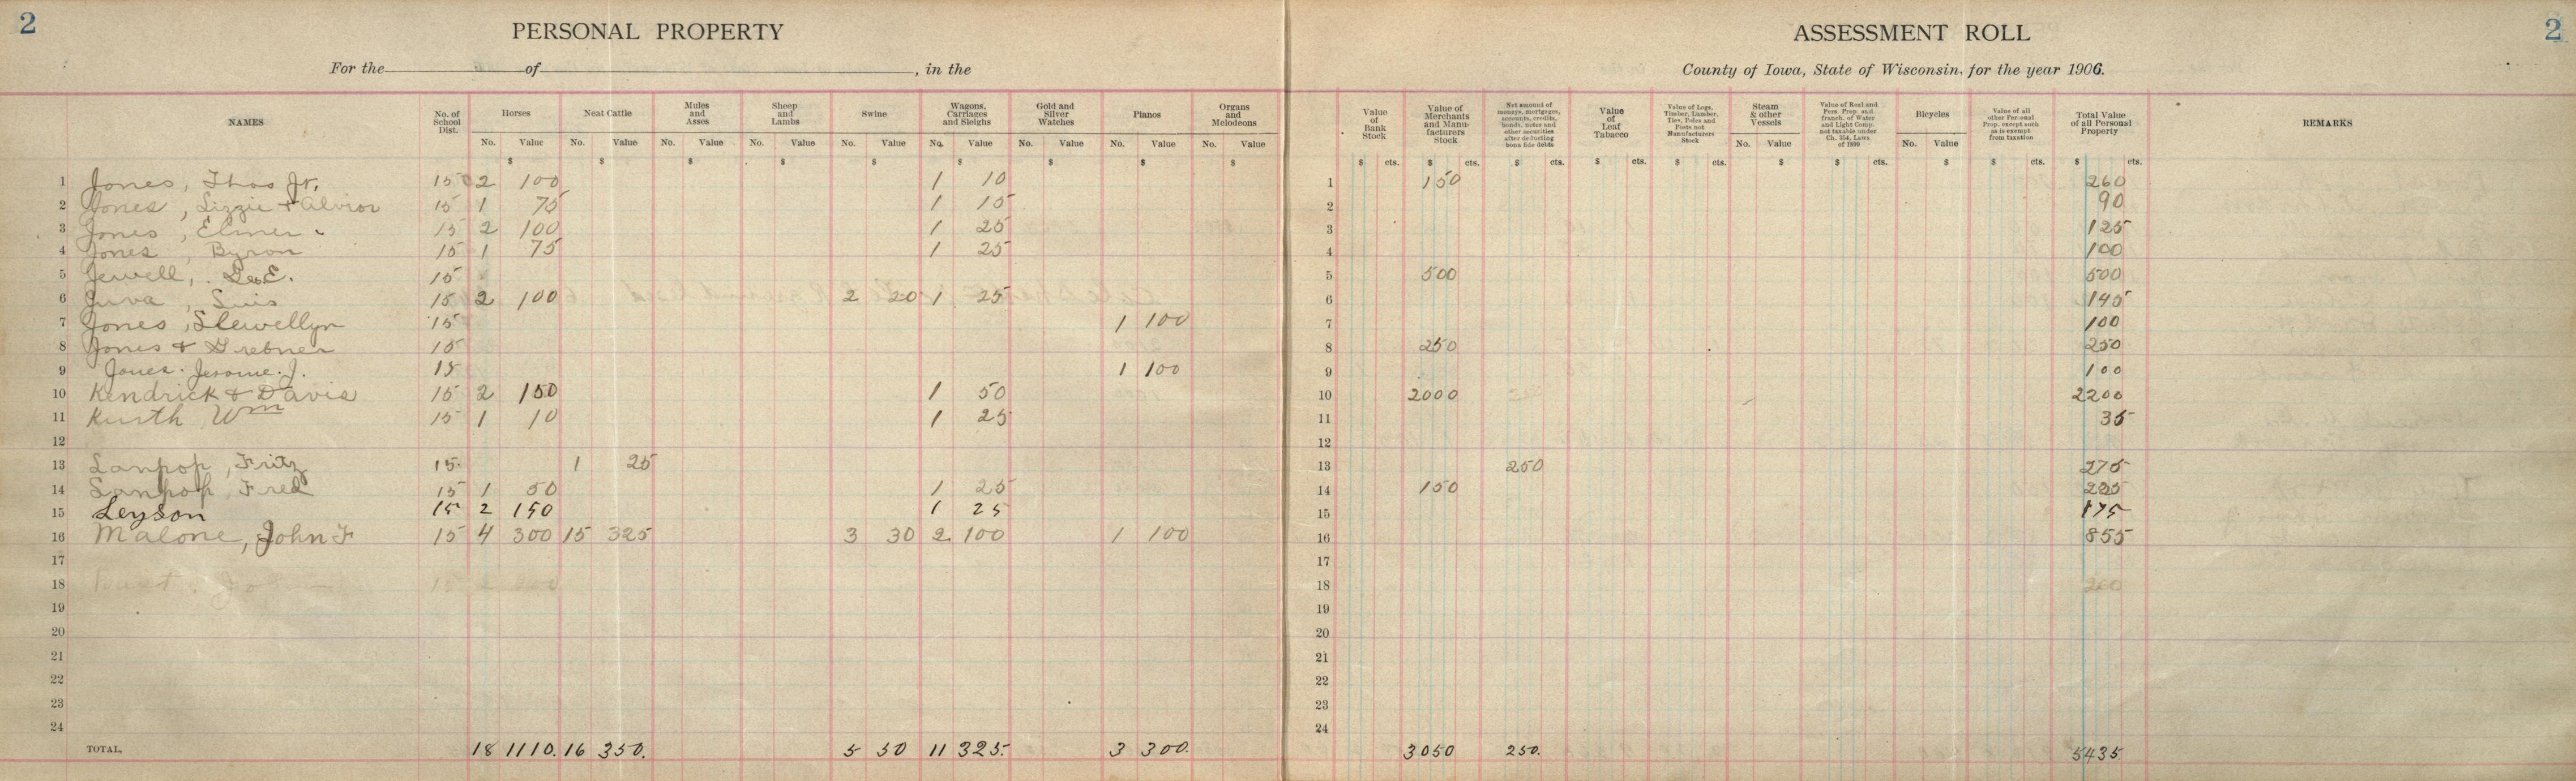 2 PERSONAL PROPERTY ASSESSMENT ROLL 2
For the of , in the County of Iowa, State of Wisconsin, for the year 1906.
NAMES No. of School Dist. Horses Neat Cattle Mules and Asses Sheep and Lambs Swine Wagons, Carriages and Sleighs Gold and Silver Watches Pianos Organs and Melodeons Value of Bank Stock Value of Merchants and Manufacturers Stock Net amount of moneys, mortgages, accounts, credits, bonds, notes and other securities after deducting bona fide debts Value of Leaf Tabacco Value of Logs, Timber, Lumber, Ties, Poles and Posts not Manufacturers Stock Steam & other Vessels Value of Real and Pers. Prop. and franch. of Water and Light Comp. not taxable under Ch. 354, Laws of 1899 Bicycles Value of all other Personal Prop. except such as is exempt from taxation Total Value of all Personal Property REMARKS
No. Value No. Value No. Value No. Value No. Value No. Value No. Value No. Value No. Value No. Value No. Value
$ $ $ $ $ $ $ $ $ $ cts. $ cts. $ cts. $ cts. $ cts. $ $ cts. $ $ cts. $ cts.
1 Jones, Thos Jr. 15 2 100 1 10 1 150 260
2 Jones, Lizzie + 15 1 75 1 15 2 90
3 Jones, Elmer 15 2 100 1 25 3 125
4 Jones, Byron 15 1 75 1 25 4 100
5 Jewell, 15 5 500 500
6 15 2 100 2 20 1 25 6 145
7 Jones, Llewellyn 15 1 100 7 100
8 Jones + Grebner 15 8 250 250
9 Jones. Jerome. J. 15 1 100 9 100
10 Kendrick + Davis 15 2 150 1 50 10 2000 2200
11 Kurth Wm 15 1 10 1 25 11 35
12 12
13 Lanpop, Fritz 15. 1 25 13 250 275
14 Lanpop, Fred 15 1 50 1 25 14 150 225
15 Leyson 15 2 150 1 25 15 175
16 Malone, John F 15 4 300 15 325 3 30 2 100 1 100 16 855
17 17
18 15 18 260
19 19
20 20
21 21
22 22
23 23
24 24
TOTAL, 18 1110. 16 350. 5 50 11 325. 3 300. 3050 250. 5435